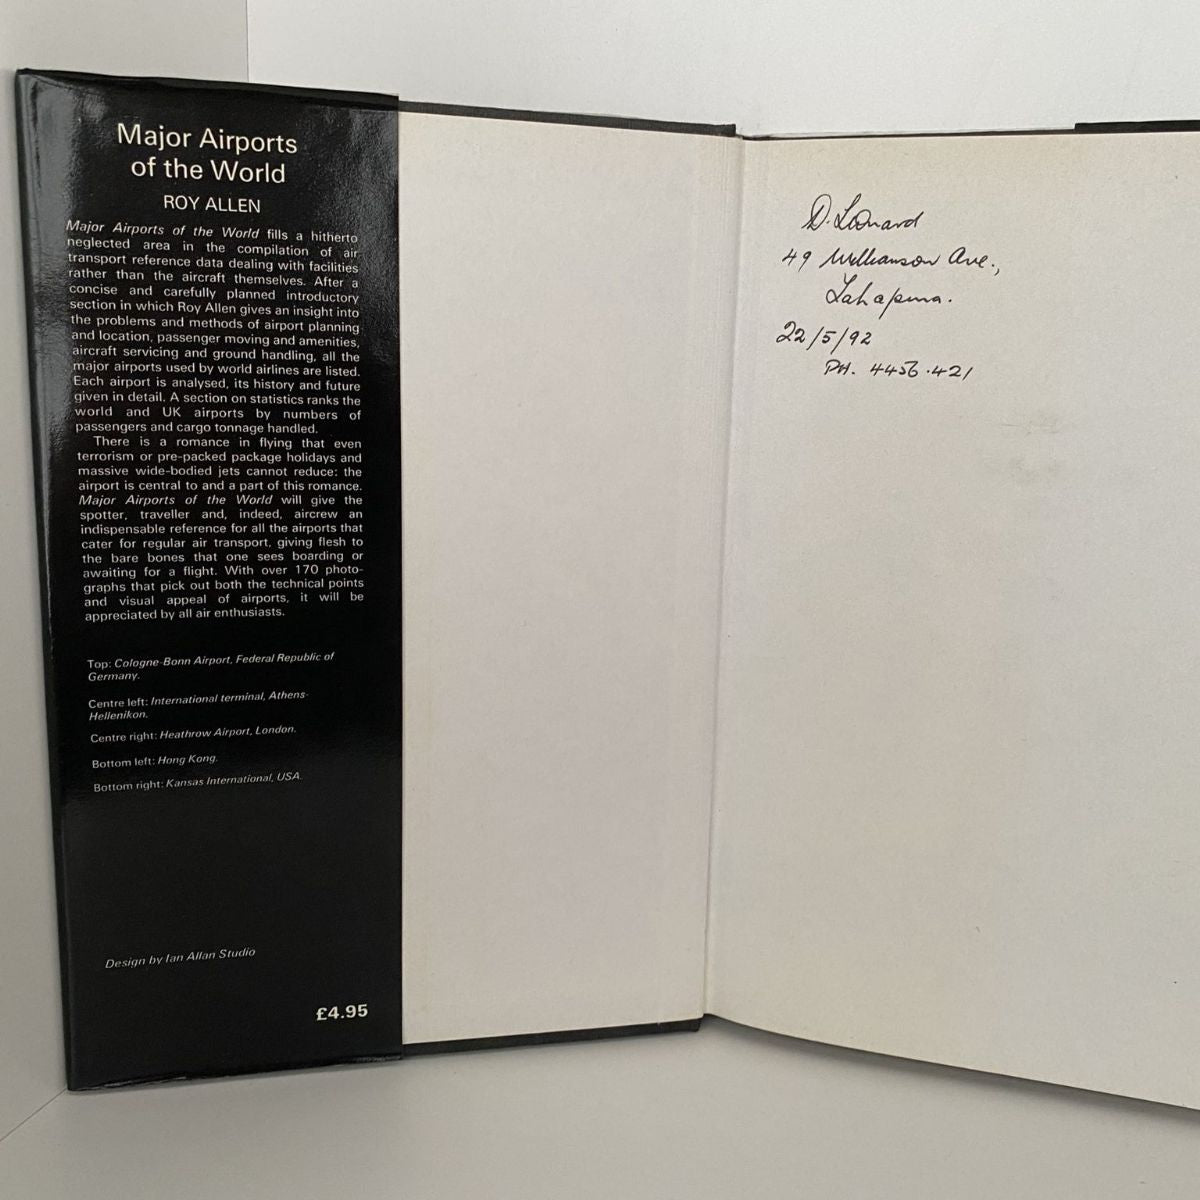 Major Airports
of the World
ROY ALLEN
Major Airports of the World fills a hitherto
neglected area in the compilation of air
transport reference data dealing with facilities
rather than the aircraft themselves. After a
concise and carefully planned introductory
section in which Roy Allen gives an insight into
the problems and methods of airport planning
and location, passenger moving and amenities,
aircraft servicing and ground handling, all the
major airports used by world airlines are listed.
Each airport is analysed, its history and future
given in detail. A section on statistics ranks the
world and UK airports by numbers of
passengers and cargo tonnage handled.
There is a romance in flying that even
terrorism or pre-packed package holidays and
massive wide-bodied jets cannot reduce: the
airport is central to and a part of this romance.
Major Airports of the World will give the
spotter, traveller and, indeed, aircrew an
indispensable reference for all the airports that
cater for regular air transport, giving flesh to
the bare bones that one sees boarding or
awaiting for a flight. With over 170 photo-
graphs that pick out both the technical points
and visual appeal of airports, it will be
appreciated by all air enthusiasts.
Top: Cologne-Bonn Airport, Federal Republic of
Germany.
Centre left: International terminal, Athens-
Hellenikon.
Centre right: Heathrow Airport, London.
Bottom left: Hong Kong.
Bottom right: Kansas International, USA.
Design by Ian Allan Studio
£4.95
D. Leonard
49 Williamson Ave.,
Takapuna.
22/5/92
PH. 4456·421